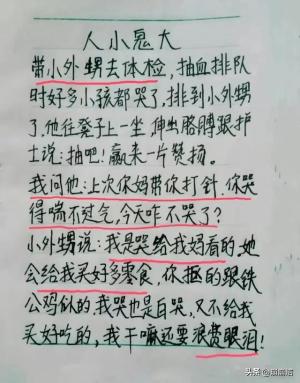 人小鬼大
带小外甥去体检，抽血排队
时好多小孩都哭了，排到小外甥
了，他往凳子上一坐，伸出胳膊跟护
士说：抽吧！赢来一片赞扬。
我问他：上次你妈带你打针，你哭
得喘不过气，今天咋不哭了？
小外甥说：我是哭给我妈看的，她
会给我买好多零食，你抠的跟铁
公鸡似的，我哭也是白哭，又不给我
买好吃的，我干嘛还要浪费眼泪！